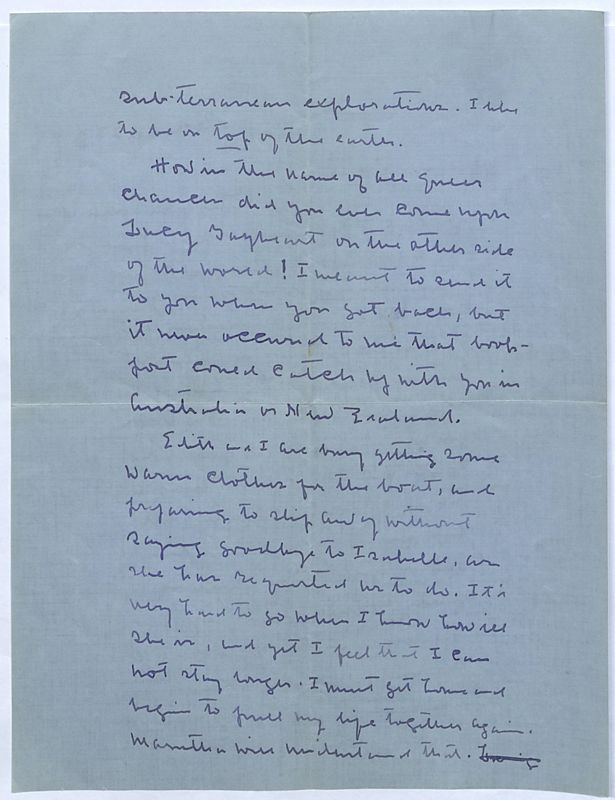 sub-terranean explorations. I like
to be on top of the earth.
How in the name of all queer
chances did you ever come upon
Lucy Gayheart on the other side
of the world! I meant to send it
to you when you got back, but
it never occurred to me that book-
post could catch up with you in
Australia or New Zealand.
Edith and I are busy getting some
warm clothes for the boat, and
preparing to slip away without
saying goodbye to Isabelle, as
she has requested us to do. It is
very hard to go when I know how ill
she is, and yet I feel that I can
not stay longer. I must get home and
begin to pull my life together again.
Marutha will understand that.